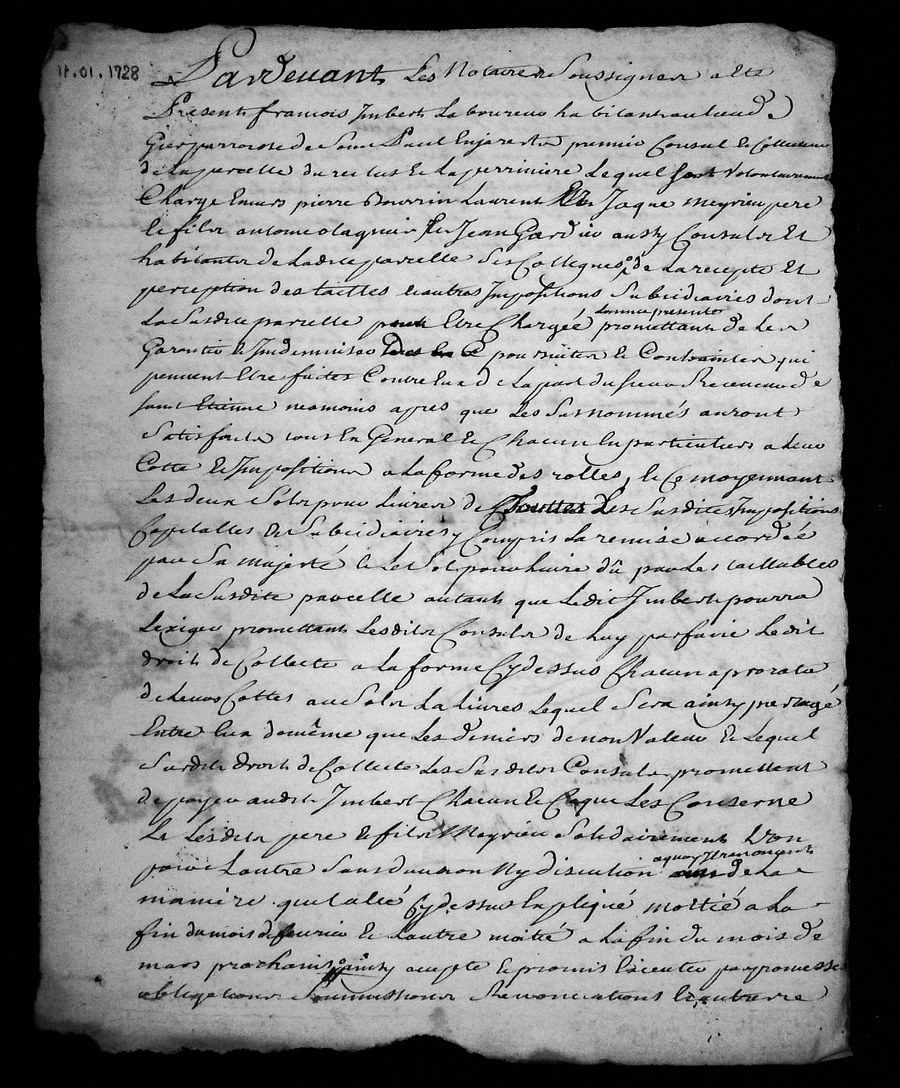 11.01.1728
Pardevant Les Notaires Soussignes a Eté
Present francois Imbert Laboureur habitant au lieu de
Gier parroisse de Saint Paul Enjarest premier Consul Et Collecteur
de La parcelle du reclus Et de La perriniere Lequel Volontairement
Charge Envers pierre Bourrin Laurent Et Jaque meyrieu pere
Et fils antoine olagnier Et Jean Gardier aussy Consuls Et
habitants de Ladite parcelle Ses Collegues de La recepte Et
perception des tailles Et autres Impositions Subsidiaires dont
La Susdite parcelle Etre Chargée Lannee presente promettant de Les
Garantir Et Indemniser poursuites Et Contraintes qui
peuvent Etre faites Contre Eux de La part du sieur Receveur de
saint Etienne neamoins apres que Les Susnommés auront
Satisfait tous En General Et Chacun En particulier a Leur
Cotte Et Impositions a La forme des rolles, Et Ce moyennant
Les deux Sols pour Livres de Les Susdites Impositions
Cappitalles Et Subsidiaires y Compris La remise accordée
par Sa majesté Et Le Sol pour Livre dû par Les taillables
de La Susdite parcelle autant que Ledit Imbert pourra
Lexiger promettant Lesdits Consuls de luy parfaire Ledit
droit de Collecte a La forme Cy dessus Chacun a prorata
de Leurs Cottes au Sol La Livres Lequel Sera ainsy partagé
Entre Eux de même que Les deniers de non Valeur Et Lequel
Susdit droit de Collecte Les Susdits Consuls promettent
de payer audit Imbert Chacun Et Ce que Les Conserne
Et Lesdits pere Et fils Meyrieu Solidairement L'un
pour Lautre Sans division Ny discution a quoy Ils renoncent de La
maniere quil a été Cy dessus Expliqué moitié a La
fin du mois de fevrier Et Lautre moitié a La fin du mois de
mars prochain ainsy accepté Et promis Executer par promesse
obligations Soummissions Renonciations Et autres